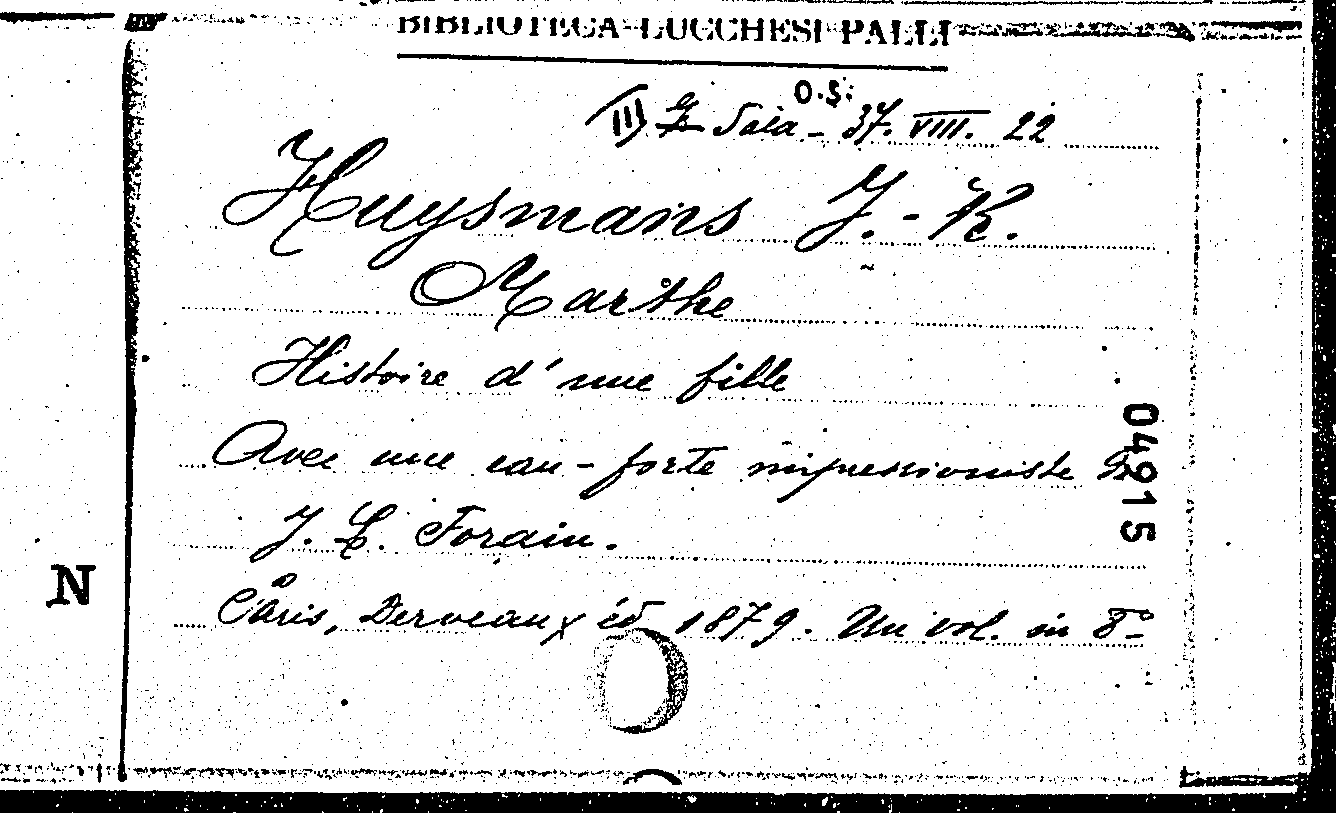 BIBLIOTECA LUCCHESI PALLI
O.S.
III Sala - 37. VIII. 22
Huysmans J.-K.
Marthe
Histoire d'une fille
Avec une eau-forte impressioniste de
J. L. Forain.
Paris, Derveaux éd 1879. Un vol. in 8º
04915
N